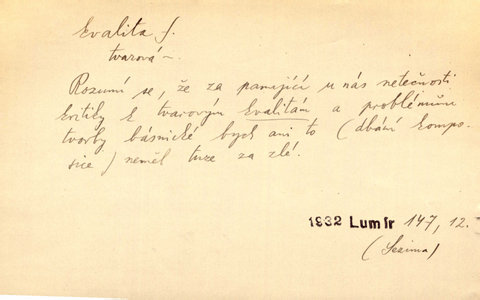 kvalita f.
tvarová ~.
Rozumí se, že za panující u nás netečnosti
kritiky k tvarovým kvalitám a problémům
tvorby básnické bych ani to (dbání kompo-
sice) neměl tuze za zlé.
1932 Lumír 147, 12.
(Sezima)